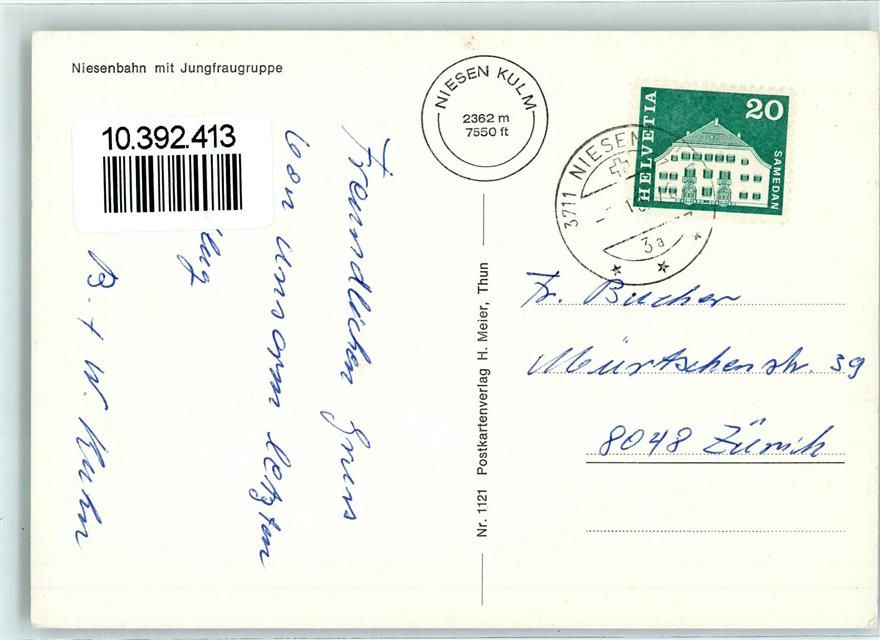 Niesenbahn mit Jungfraugruppe
10.392.413
Freundlichen Gruss
von unserm letzten
B. + W. Kuhn
Nr. 1121 Postkartenverlag H. Meier, Thun
NIESEN KULM
2362 m
7550 ft
3711 NIESEN
3a
HELVETIA
20
SAMEDAN
Fr. Bucher
Mürtschenstr. 39
8048 Zürich